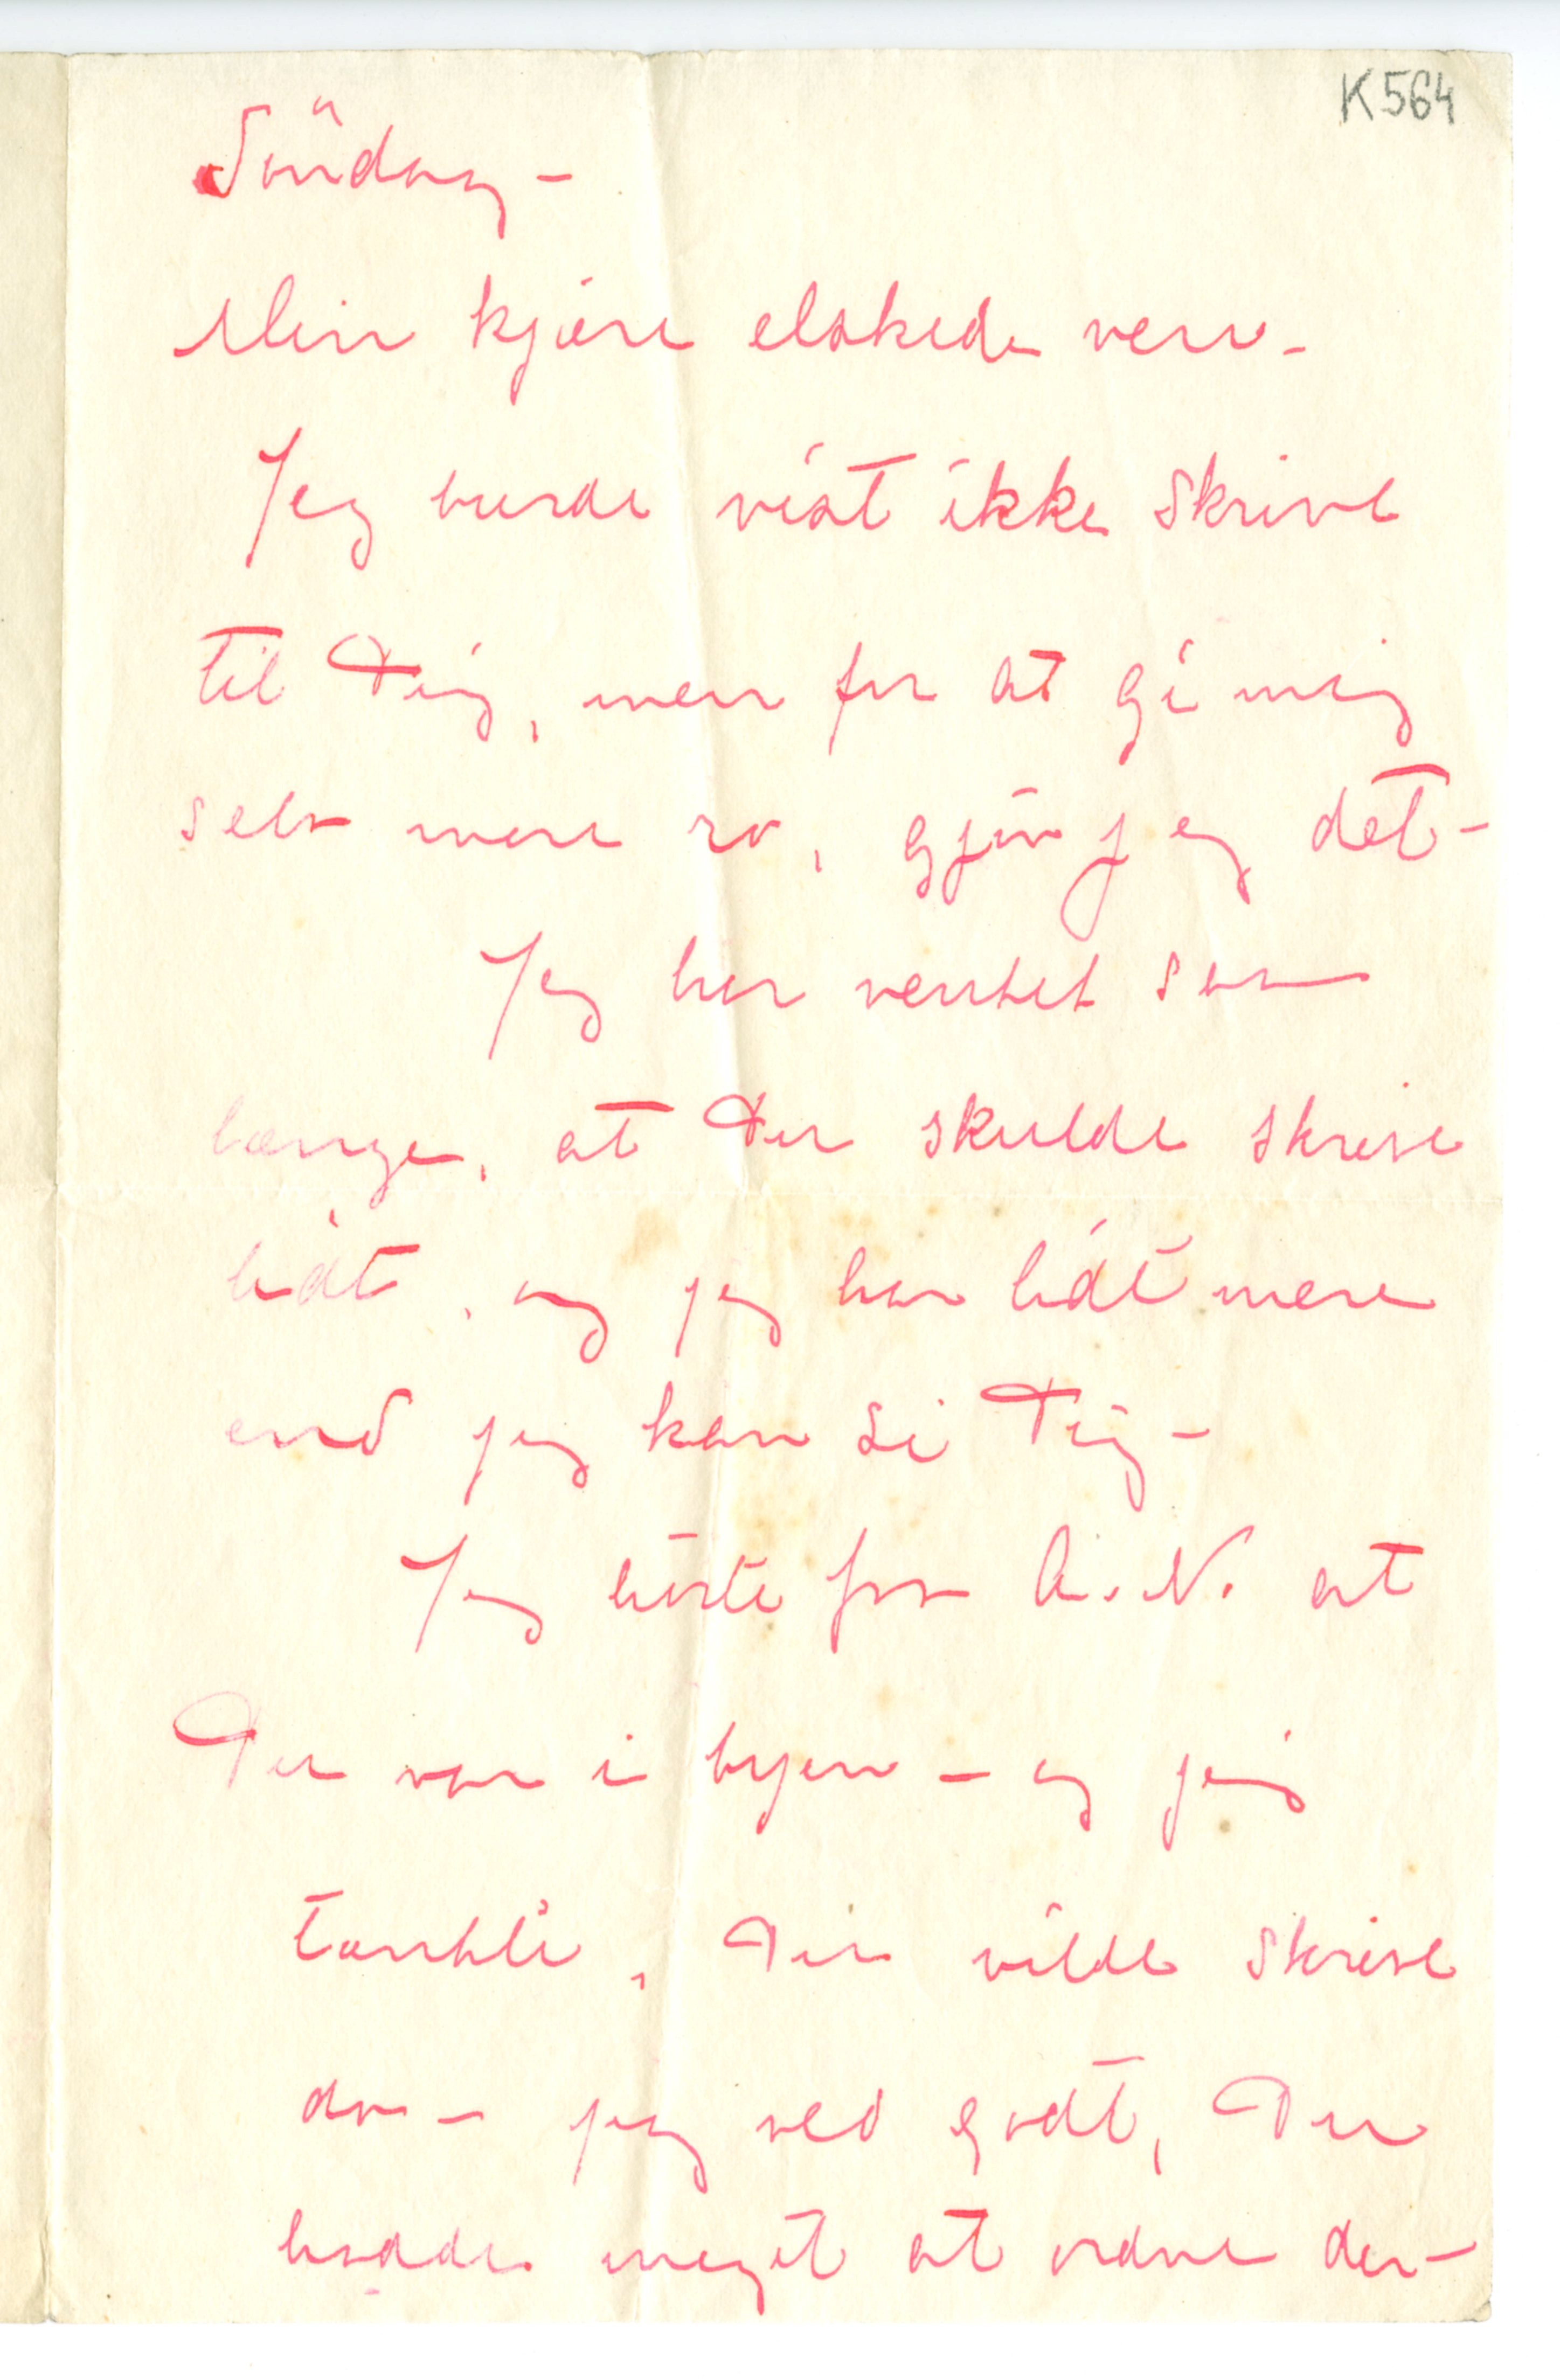 K 564
Söndag –
Min kjære elskede ven –
Jeg burde vist ikke skrive
til Dig, men for at gi mig
selv mere ro, gjör jeg det –
Jeg har ventet saa
længe, at Du skulde skrive
lidt, og jeg har lidt mere
end jeg kan si Dig –
Jeg hörte fra A. N. at
Du var i byen – og jeg
tænkte, Du vilde skrive
da – jeg ved godt, Du
hadde meget at ordne der –